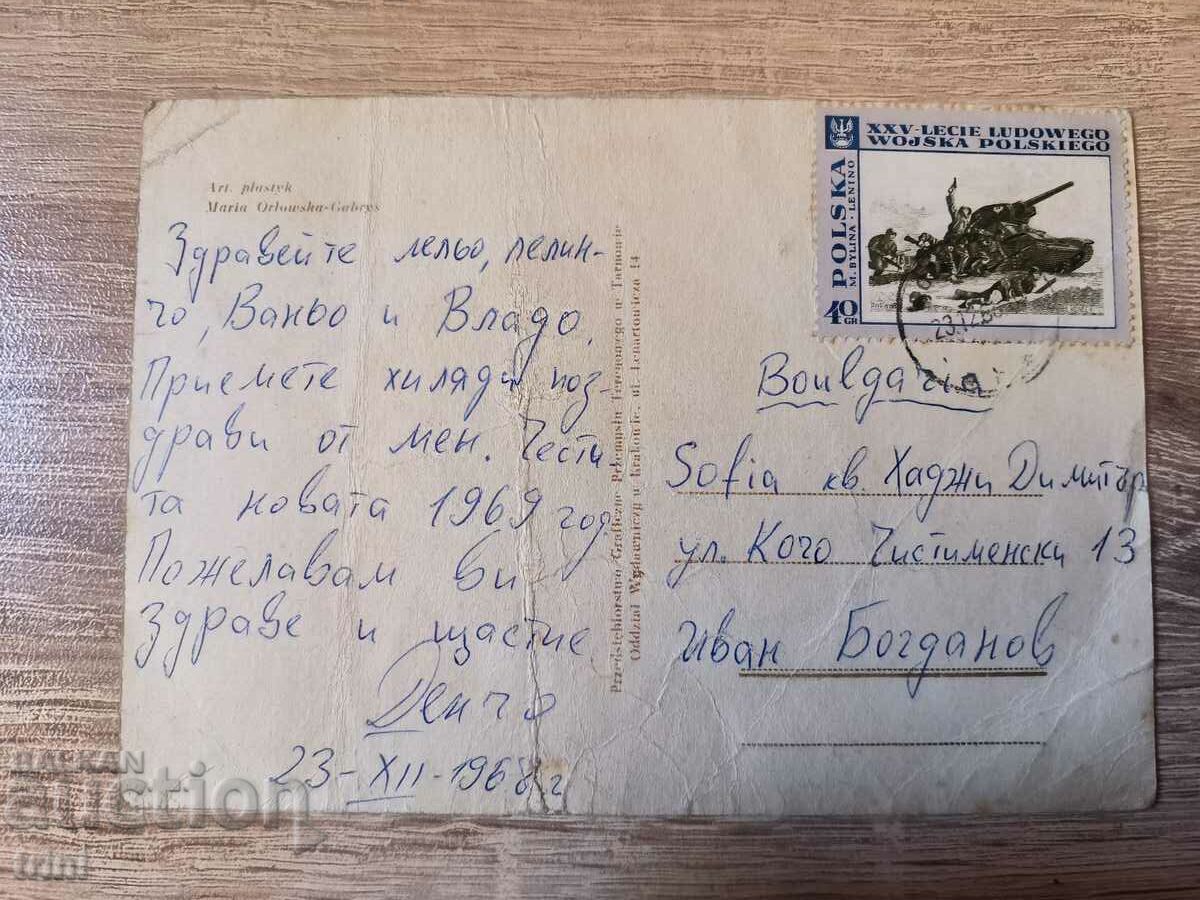 Art. plastyk
Maria Orłowska-Gabryś
Здравейте лельо, лелин-
чо, Ваньо и Владо.
Приемете хиляди поз-
драви от мен. Чести-
та новата 1969 год.
Пожелавам ви
здраве и щастие
Денчо
23-XII-1968 г.
Przedsiębiorstwo Graficzne Przemysłu Terenowego w Tarnowie
Oddział Wydawniczy w Krakowie, ul. Lenartowicza 14
XXV-LECIE LUDOWEGO
WOJSKA POLSKIEGO
POLSKA
M. BYLINA - LENINO
40 GR
23.12.68
Boulgaria
Sofia кв. Хаджи Димитър
ул. Кочо Чистименски 13
Иван Богданов
BALKAN
auction
trini